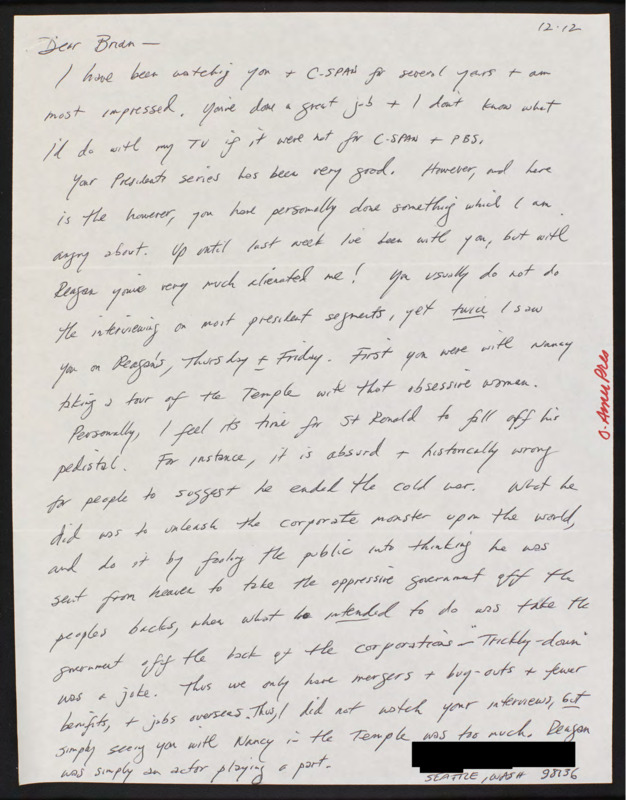 12-12
Dear Brian —
I have been watching you + C-SPAN for several years + am
most impressed. You've done a great job + I don't know what
I'd do with my TV if it were not for C-SPAN + PBS.
Your Presidents series has been very good. However, and here
is the however, you have personally done something which I am
angry about. Up until last week I've been with you, but with
Reagan you've very much alienated me! You usually do not do
the interviewing on most president segments, yet twice I saw
you on Reagan's, Thursday + Friday. First you were with Nancy
taking a tour of the Temple with that obsessive woman.
Personally, I feel its time for St Ronald to fall off his
pedistal. For instance, it is absurd + historically wrong
for people to suggest he ended the cold war. What he
did was to unleash the corporate monster upon the world,
and do it by fooling the public into thinking he was
sent from heaven to take the oppressive government off the
peoples backs, when what he intended to do was take the
government off the back of the corporations – "Trickly-down"
was a joke. Thus we only have mergers + buy-outs + fewer
benefits, + jobs overseas. Thus, I did not watch your interviews, but
simply seeing you with Nancy in the Temple was too much. Reagan
was simply an actor playing a part.
SEATTLE, WASH 98136
O. Amer Pres